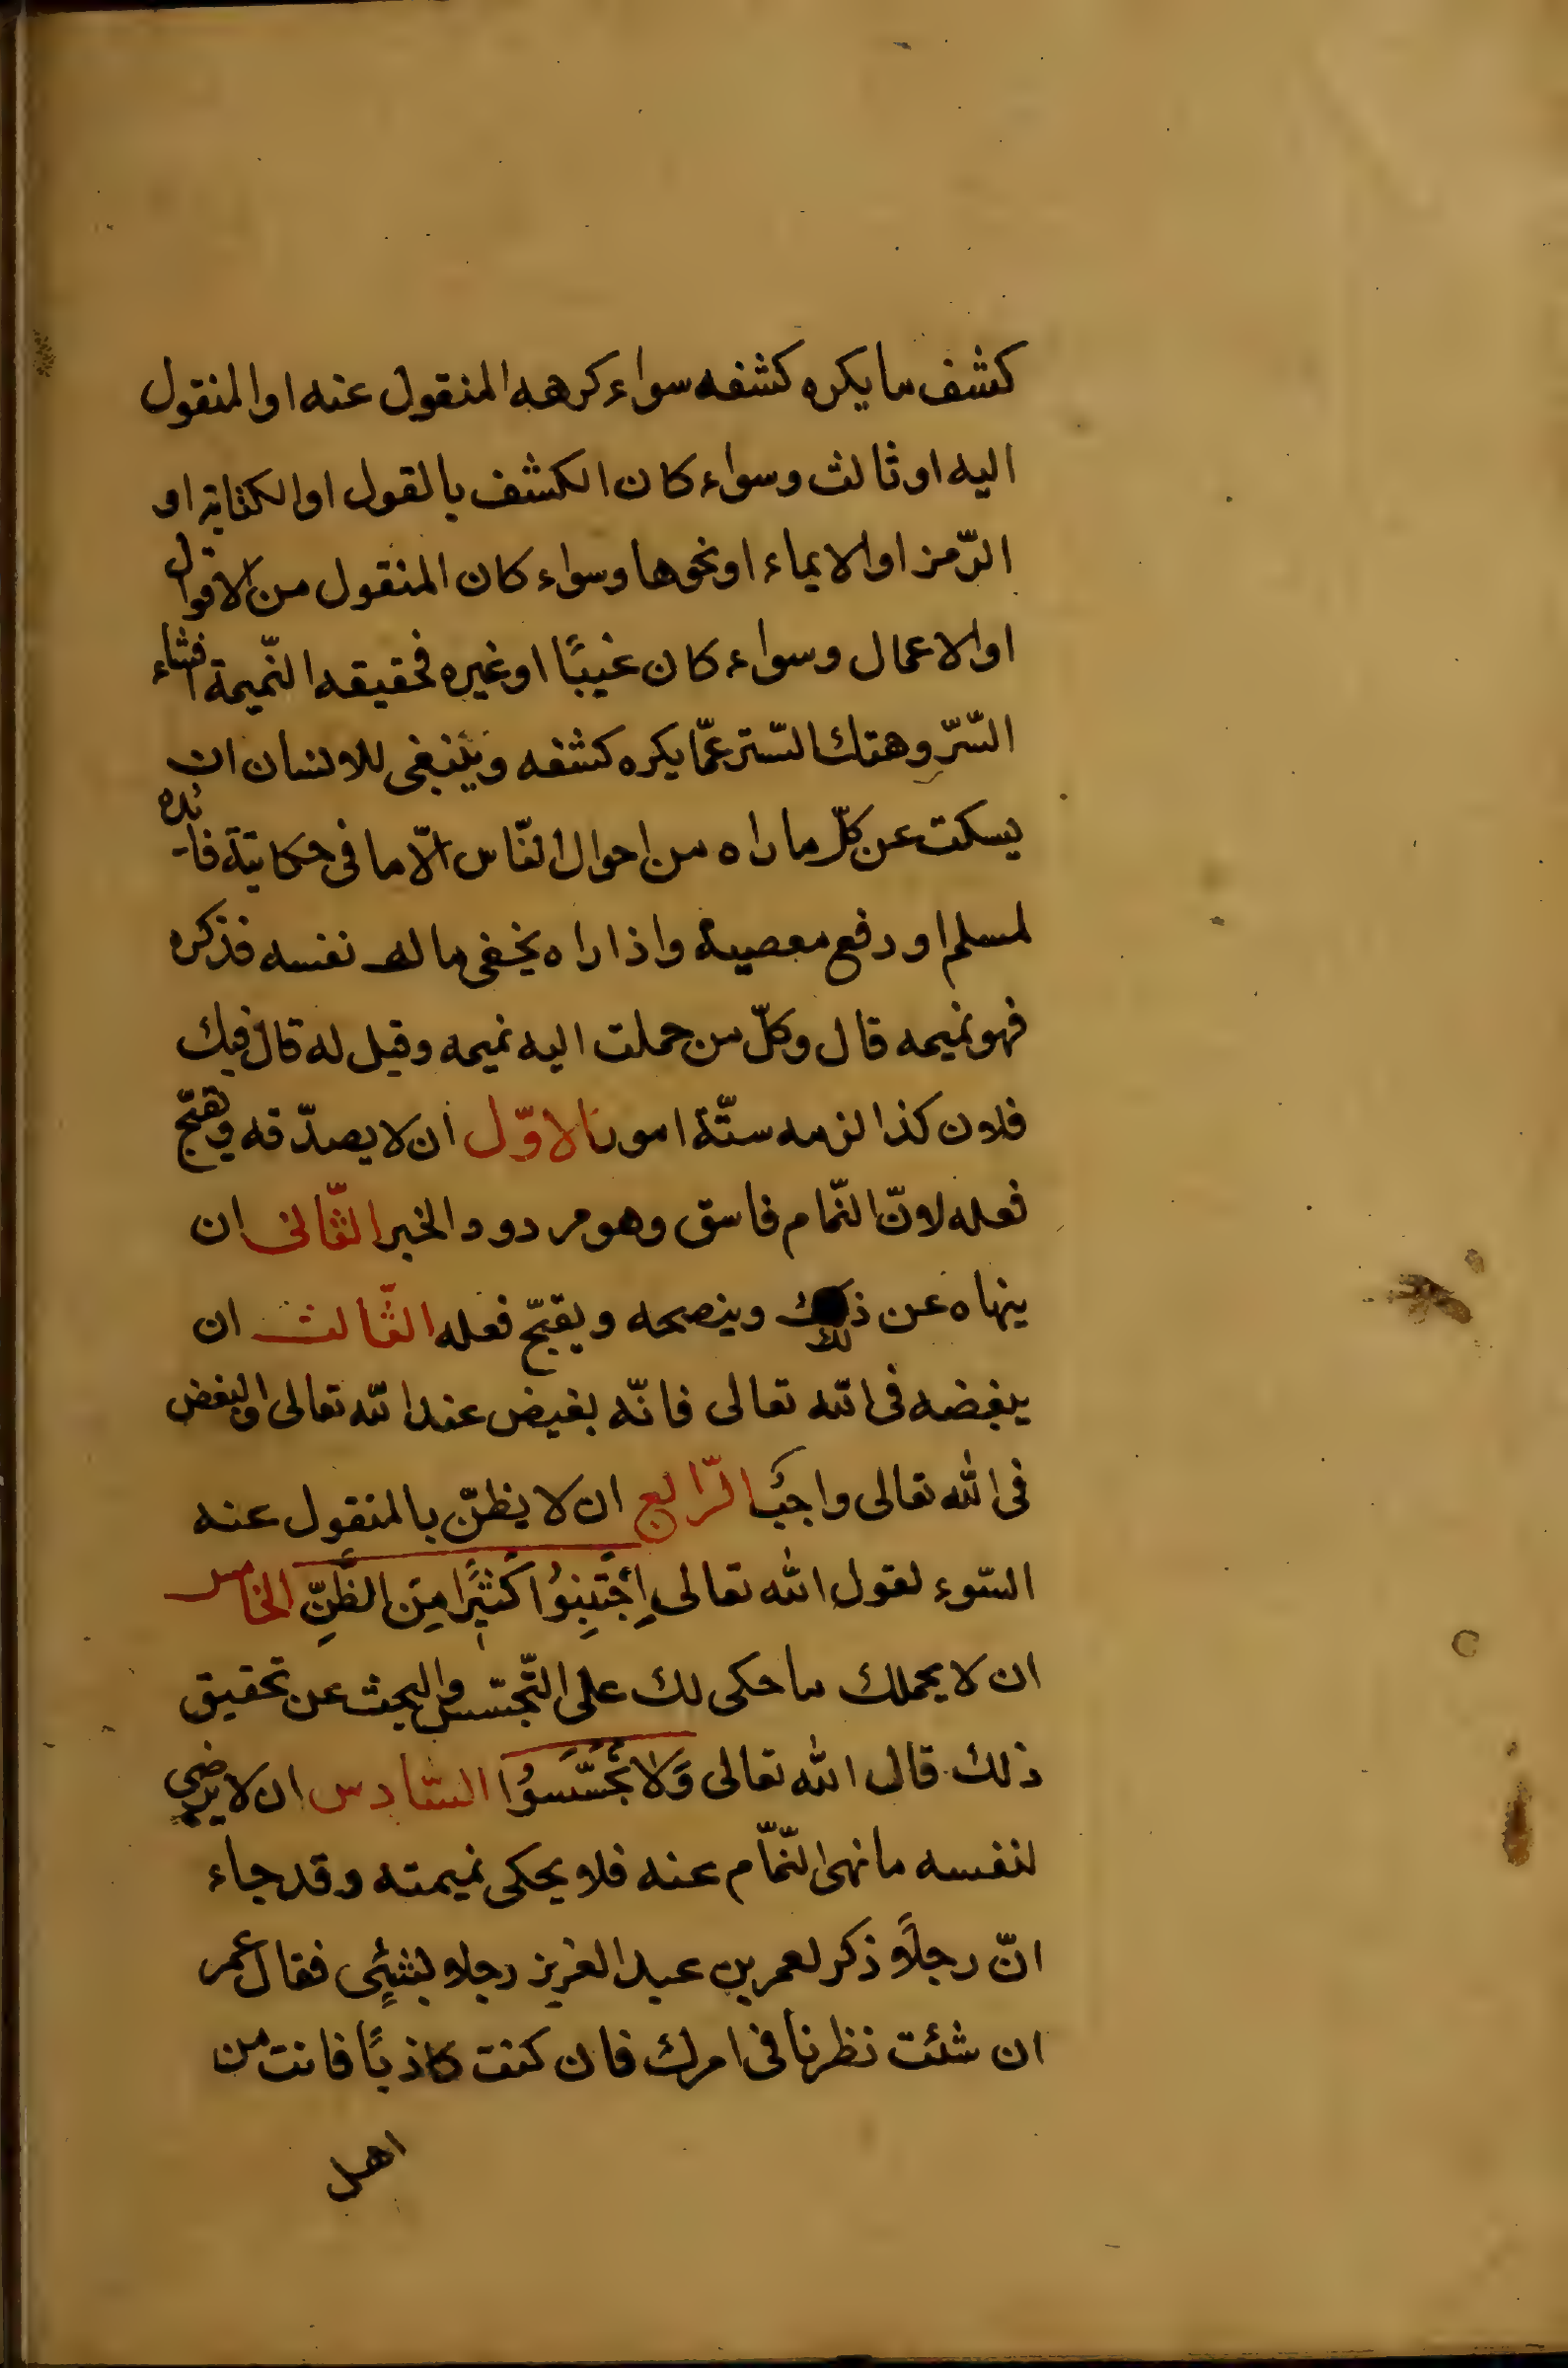 كشف ما يكره كشفه سواء كرهه المنقول عنه او المنقول
اليه او ثالث وسواء كان الكشف بالقول او الكتابة او
الرّمز او الايماء او نحوها وسواء كان المنقول من الاقوال
او الاعمال وسواء كان عيبًا او غيره فحقيقه النّميمة افشاء
السّرّ وهتك السّتر عمّا يكره كشفه وينبغى للانسان ان
يسكت عن كلّ ما راه من احوال النّاس الّا ما فى حكايتة فائده
لمسلم او دفع معصية واذا راه يخفى مال نفسه فذكره
فهو نميمه قال وكلّ من حملت اليه نميمه وقيل له قال فيك
فلان كذا لزمه ستّة امور الاوّل ان لا يصدّقه ويقبّح
فعله لانّ النّمام فاسق وهو مردود الخبر الثّانى ان
ينهاه عن ذلك وينصحه ويقبّح فعله الثّالث ان
يبغضه فى الله تعالى فانّه بغيض عند الله تعالى والبغض
فى الله تعالى واجبًا الرّابع ان لا يظنّ بالمنقول عنه
السّوء لقول الله تعالى اِجْتَنِبُوْا كَثِيْرًا مِنَ الظَّنِّ الخامس
ان لا يحملك ما حكى لك على التّجسّس والبحث عن تحقيق
ذلك قال الله تعالى وَلَا تَجَسَّسُوْا السّادس ان لا يرضى
لنفسه ما نهى النّمّام عنه فلا يحكى نميمته وقد جاء
انّ رجلًا ذكر لعمر بن عبد العزيز رجلا بشيٍئى فقال عمر
ان شئت نظرنا فى امرك فان كنت كاذبًا فانت من
اهل